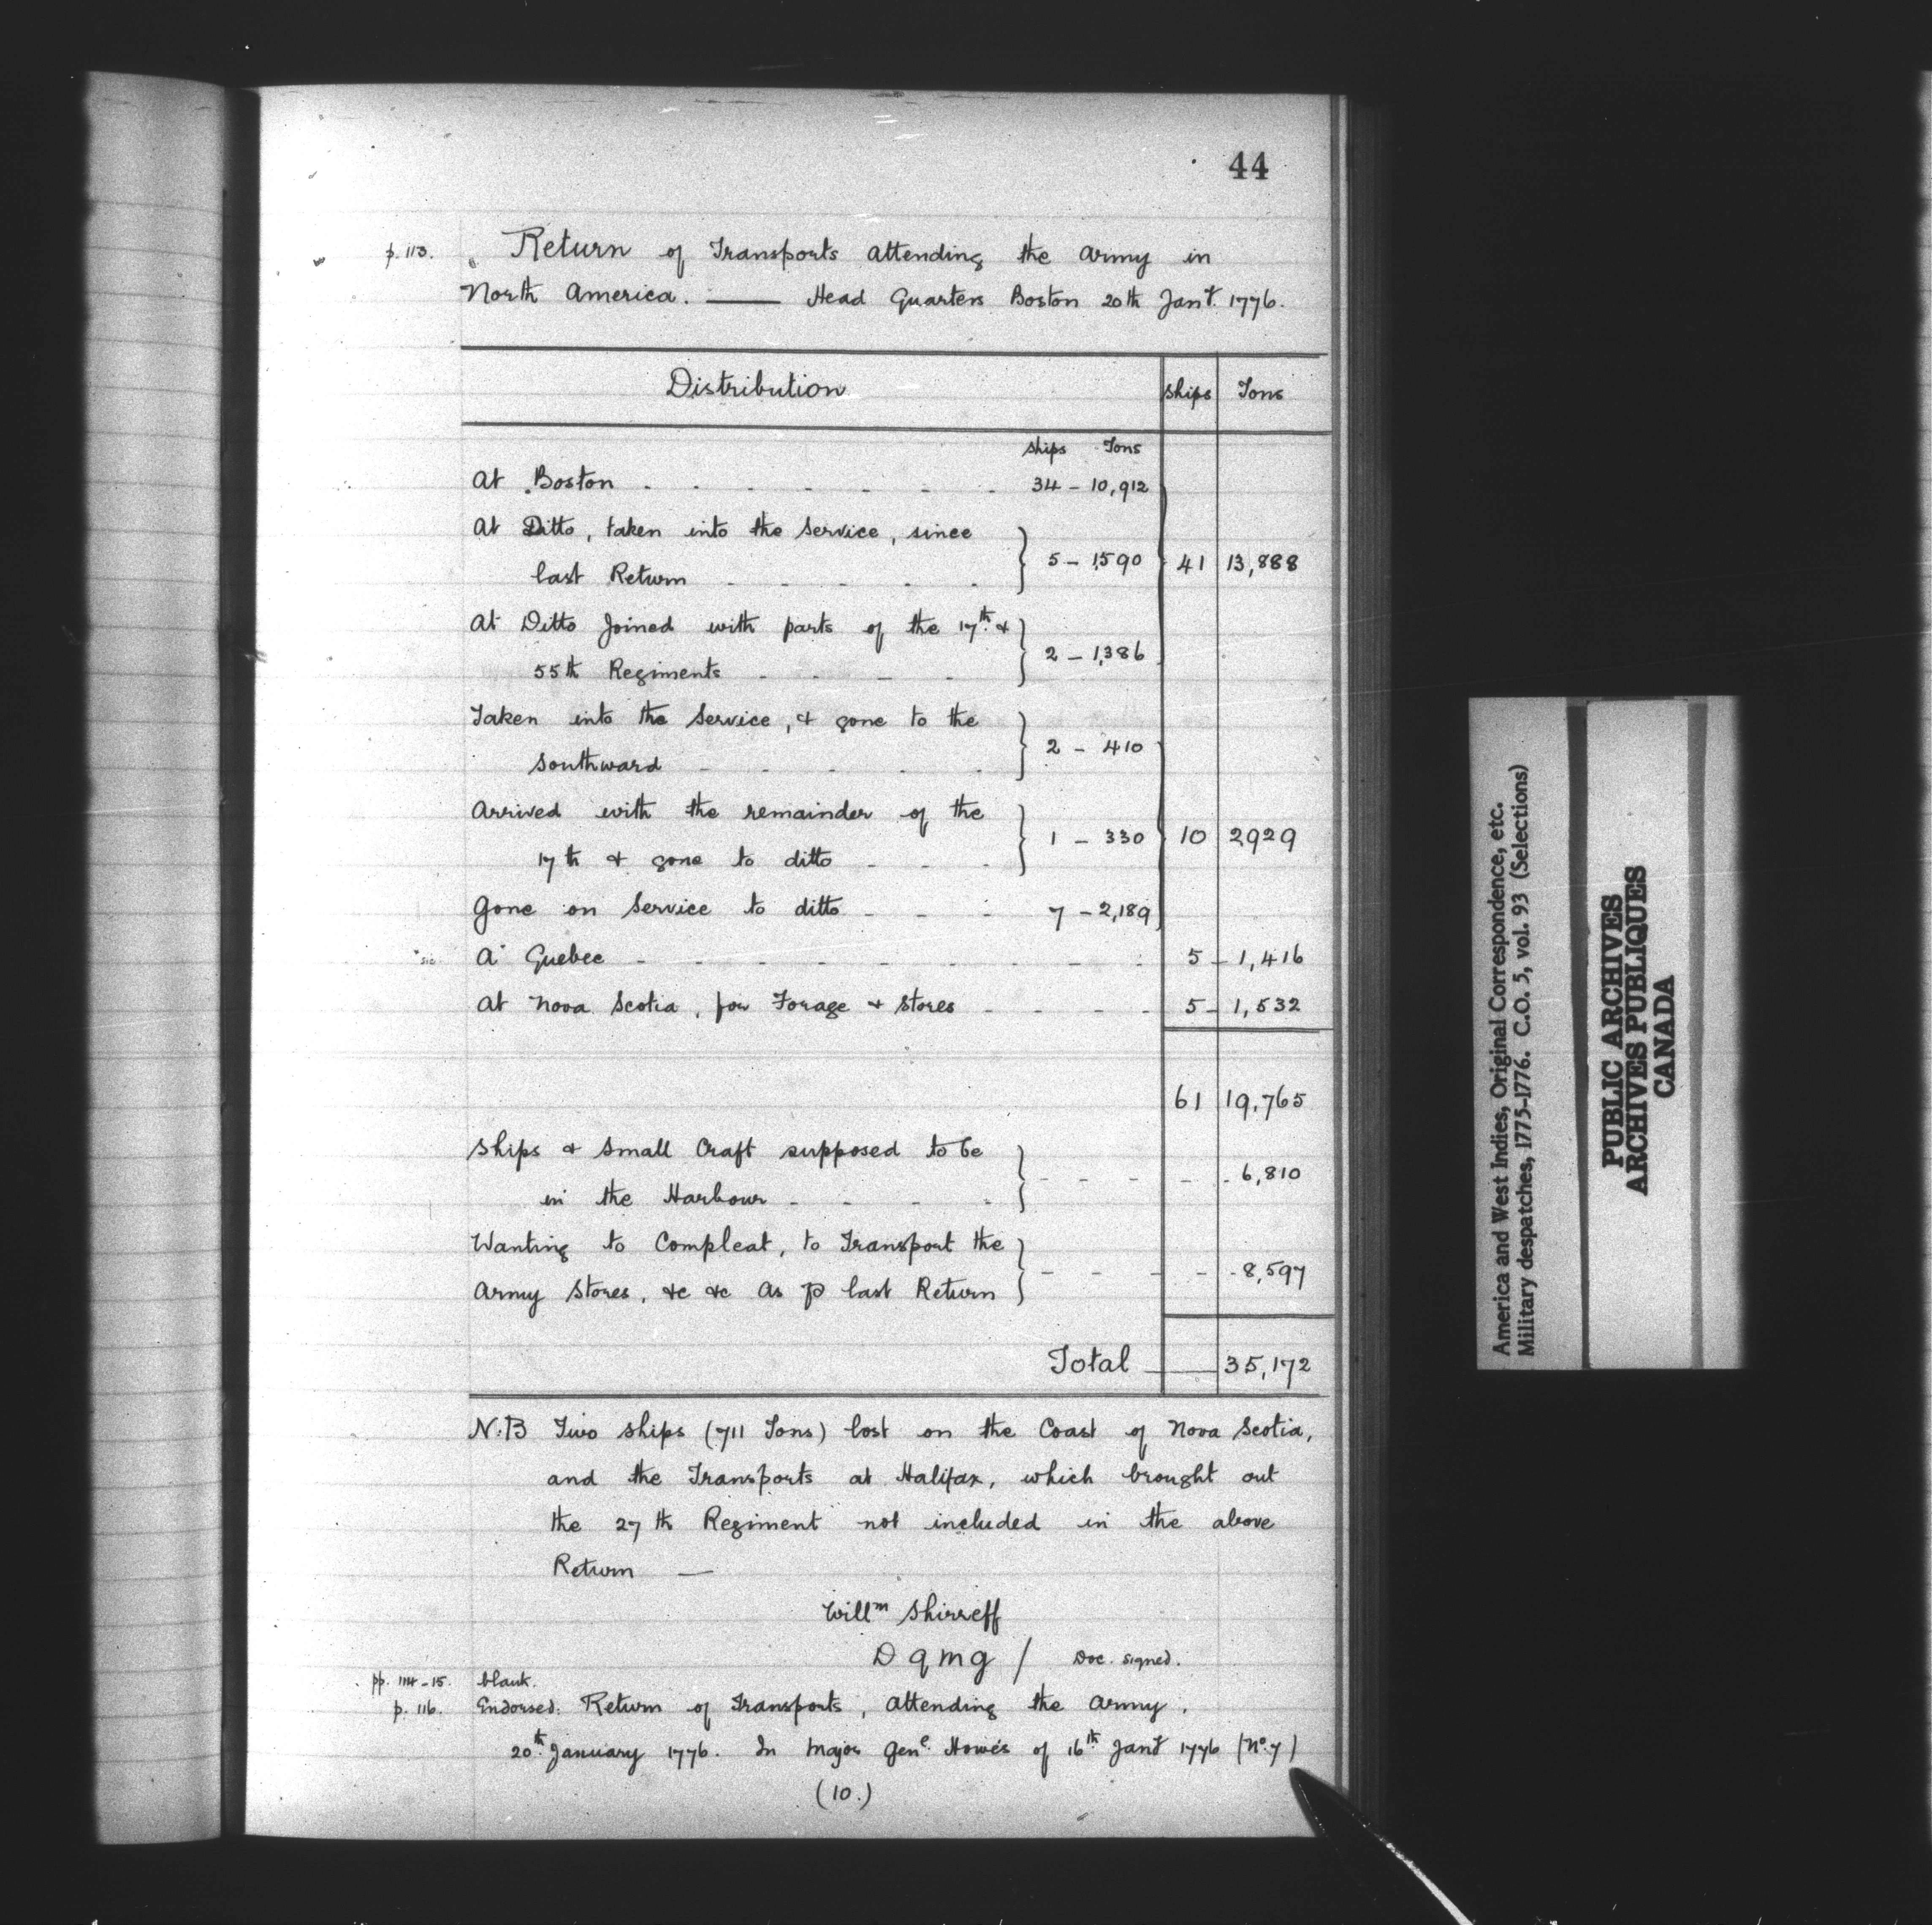 44
p. 113. Return of Transports attending the Army in
North America. — Head Quarters Boston 20th Jany. 1776.
Distribution ships Tons
ships Tons
At Boston - - - - - - - 34 - 10,912
At Ditto, taken into the Service, since
last Return - - - - - } 5 - 1590 } 41 13,888
At Ditto Joined with parts of the 17th. &
55th Regiments - - - - } 2 - 1,386
Taken into the Service, & gone to the
Southward - - - - - } 2 - 410
Arrived with the remainder of the
17th & gone to ditto - - - } 1 - 330 } 10 2929
Gone on Service to ditto - - - 7 - 2,189
"sic. A Quebec - - - - - - - - - 5 - 1,416
At Nova Scotia, for Forage & Stores - - - - 5 - 1,532
61 19,765
Ships & Small Craft supposed to be
in the Harbour - - - - } - - - - - 6,810
Wanting to Compleat, to Transport the
Army Stores, &c &c As p last Return } - - - - - 8,597
Total — 35,172
N.B Two ships (711 Tons) lost on the Coast of Nova Scotia,
and the Transports at Halifax, which brought out
the 27th Regiment not included in the above
Return —
Willm Shirreff
D q m g / Doc. signed.
pp. 114-15. blank.
p. 116. Endorsed: Return of Transports, attending the Army.
20th. January 1776. In Major Genl. Howe's of 16th. Jany 1776 (No. 7)
(10.)
America and West Indies, Original Correspondence, etc.
Military despatches, 1775-1776. C.O. 5, vol. 93 (Selections)
PUBLIC ARCHIVES
ARCHIVES PUBLIQUES
CANADA